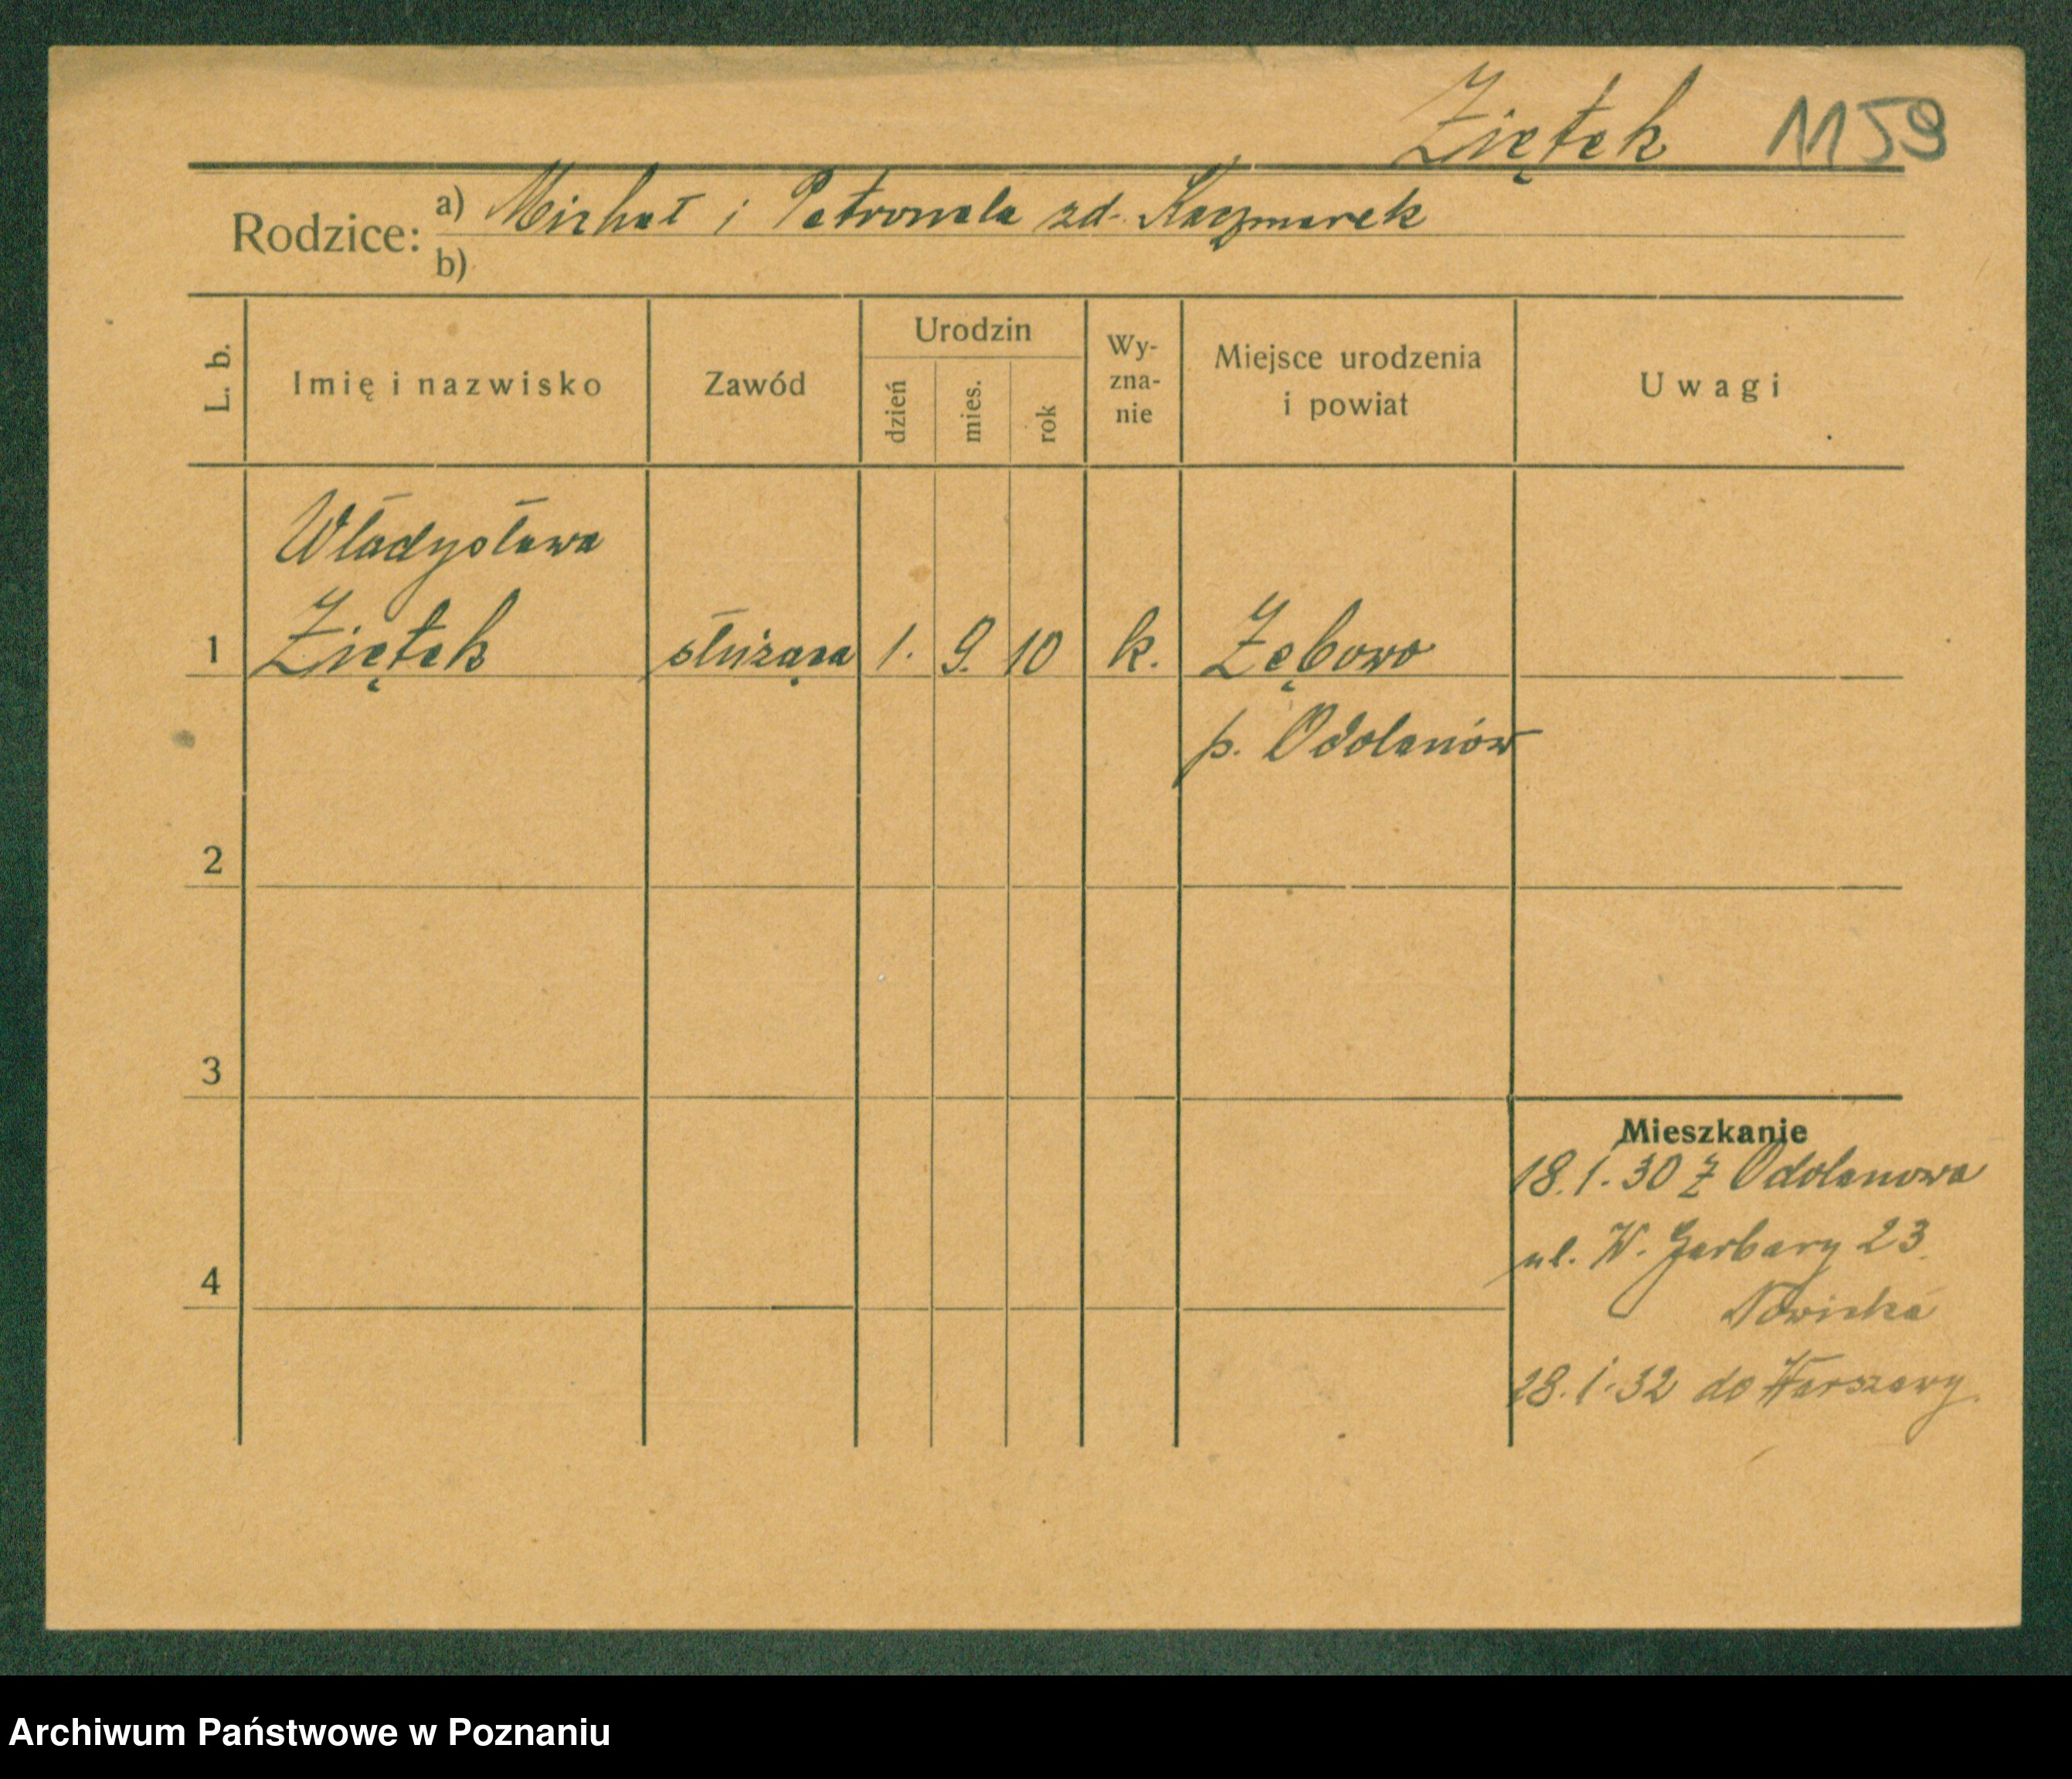 Ziętek 1159
Rodzice: a) Michał i Petronela zd. Kaczmarek
b)
L. b. Imię i nazwisko Zawód Urodzin dzień mies. rok Wy-zna-nie Miejsce urodzenia i powiat Uwagi
Władysława
1 Ziętek służąca 1. 9. 10 k. Zębowo
p. Odolanów
2
3
Mieszkanie
18.1.30 z Odolanowa
ul. W. Garbary 23
4
Nowicka
28.1.32 do Warszawy
Archiwum Państwowe w Poznaniu